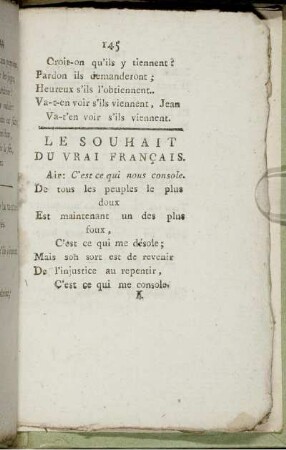 145
Croit-on qu'ils y tiennent?
Pardon ils demanderont;
Heureux s'ils l'obtiennent..
Va-t-en voir s'ils viennent, Jean
Va-t'en voir s'ils viennent.
LE SOUHAIT
DU VRAI FRANÇAIS.
Air: C'est ce qui nous console.
De tous les peuples le plus
doux
Est maintenant un des plus
foux,
C'est ce qui me désole;
Mais son sort est de revenir
De l'injustice au repentir,
C'est ce qui me console.